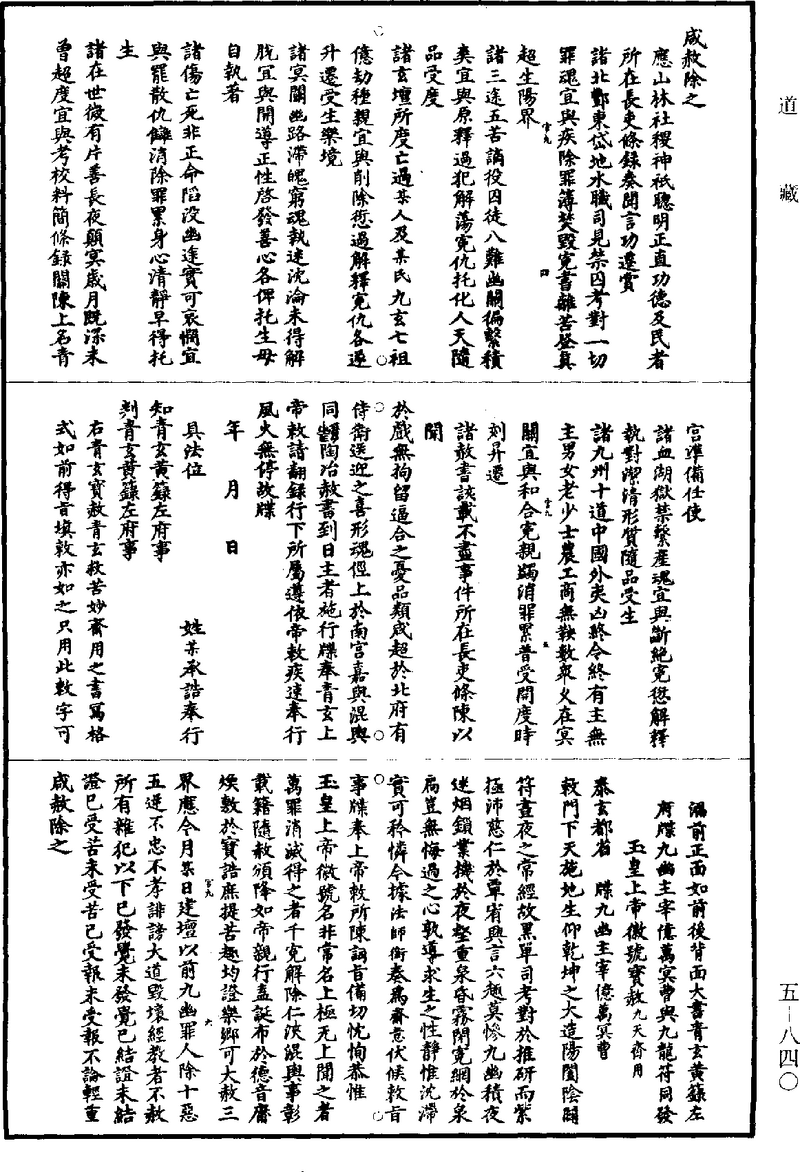 道藏
五—八四〇
咸赦除之
應山林社稷神祇聰明正直功德及民者
所在長吏條錄奏聞言功遷賞
諸北酆東岱地水職司見禁囚考對一切
罪魂宜與疾除罪簿焚毀寃書離苦登真
超生陽界
諸三途五苦謫役囚徒八難幽關偏繫積
奕宜與原釋過犯解蕩寃仇托化人天隨
品受度
諸玄壇所度亡過某人及某氏九玄七祖
億劫種親宜與削除愆過解釋寃仇各遂
升遷受生樂境
諸冥關幽路滯魄窮魂執迷沈淪未得解
脫宜與開導正性啓發善心各俾托生毋
自執著
諸傷亡死非正命陷没幽途實可哀憫宜
與罷散仇讎消除罪累身心清靜早得托
生
諸在世微有片善長夜顛冥歲月既深未
曾超度宜與考校料簡條錄關陳上名青
宮準備任使
諸血湖獄禁繫產魂宜與斷絕寃愆解釋
執對潔清形質隨品受生
諸九州十道中國外夷凶終令終有主無
主男女老少士農工商無鞅數衆久在冥
關宜與和合寃親蠲消罪累普受開度時
刻昇遷
諸赦書該載不盡事件所在長吏條陳以
聞
於戲無拘留逼合之憂品類咸超於北府有
侍衛送迎之喜形魂俓上於南宮嘉與混輿
同躋陶冶赦書到日主者施行牒奉青玄上
帝敕請翻錄行下所屬遵依帝敕疾速奉行
風火無停故牒
年 月 日
具法位 姓某承誥奉行
知青玄黃籙左府事
判青玄黃籙左府事
右青玄寶赦青玄救苦妙齋用之書寫格
式如前得旨填敕亦如之只用此敕字可
濕前正面如前後背面大書青玄黃籙左
府牒九幽主宰億萬冥曹與九龍符同發
玉皇上帝徽號寶赦九天齋用
泰玄都省 牒九幽主宰億萬冥曹
敕門下天施地生仰乾坤之大造陽闔陰闢
符晝夜之常經故黑單司考對於推研而紫
極沛慈仁於覃宥興言六趣莫慘九幽積夜
迷烟鎖業機於夜壑重泉昏霧閉寃網於泉
扃豈無悔過之心孰導求生之性靜惟沈滯
實可矜憐今據法師銜奏爲齋意伏候敕旨
事牒奉上帝敕所陳詞旨備切忱恂恭惟
玉皇上帝徽號名非常名上極无上聞之者
萬罪消滅得之者千寃解除仁浹混輿事彰
載籍隨赦頒降如帝親行盍誕布於德音廥
煥敷於寶誥庶提苦趣均證樂鄉可大赦三
界應今月某日建壇以前九幽罪人除十惡
五逆不忠不孝誹謗大道毀壞經教者不赦
所有雜犯以下已發覺未發覺已結證未結
證已受苦未受苦已受報未受報不論輕重
咸赦除之